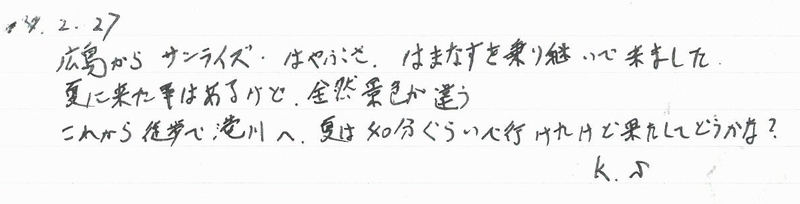 .2.27
広島から サンライズ・はやぶさ、はまなすを乗り継いで来ました。
夏に来た事はあるけど、全然景色が違う
これから徒歩で滝川へ、夏は40分ぐらいで行けたけど果たしてどうかな?
K.S